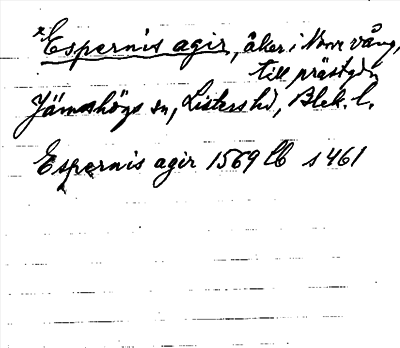 *Espernis agir, åker i Norr vång,
till prästgdn
Jämshögs sn, Listers hd, Blek. l.
Espernis agir 1569 lb s 461